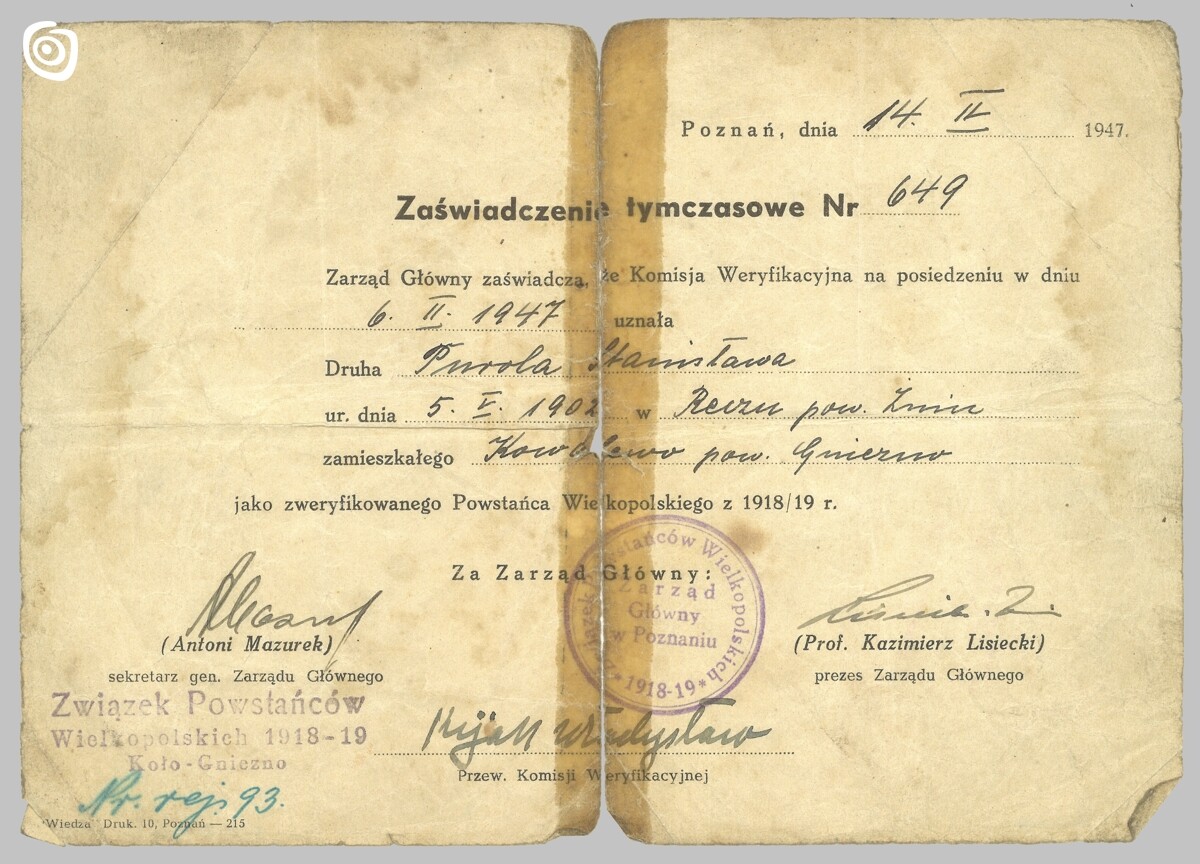 Poznań, dnia 14. II 1947.
Zaświadczenie tymczasowe Nr 649
Zarząd Główny zaświadcza, że Komisja Weryfikacyjna na posiedzeniu w dniu
6. II. 1947 uznała
Druha Purola Stanisława
ur. dnia 5. V. 1902 w Reczu pow. Żnin
zamieszkałego Kowalewo pow. Gniezno
jako zweryfikowanego Powstańca Wielkopolskiego z 1918/19 r.
Za Zarząd Główny:
Związek Powstańców Wielkopolskich
Zarząd
Główny
w Poznaniu
*1918-19*
(Antoni Mazurek)
sekretarz gen. Zarządu Głównego
(Prof. Kazimierz Lisiecki)
prezes Zarządu Głównego
Związek Powstańców
Wielkopolskich 1918-19
Koło-Gniezno
Kijak Władysław
Przew. Komisji Weryfikacyjnej
Nr. rej. 93.
"Wiedza" Druk. 10, Poznań — 215